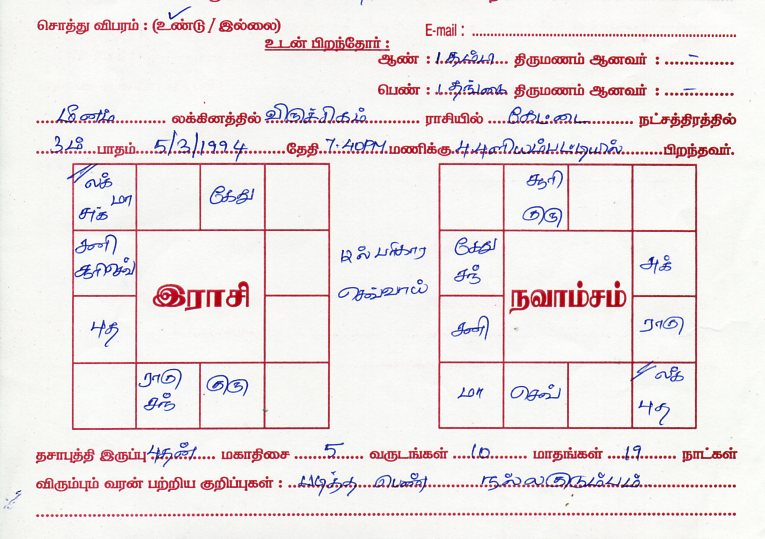 சொத்து விபரம் : (உண்டு / இல்லை)
E-mail :
உடன் பிறந்தோர் :
ஆண் : 1 தம்பி திருமணம் ஆனவர் : –
பெண் : 1 தங்கை திருமணம் ஆனவர் : –
மீனம் லக்கினத்தில் விருச்சிகம் ராசியில் கேட்டை நட்சத்திரத்தில்
3ம் பாதம் 5/3/1994 தேதி 7.40PM மணிக்கு பிறந்தவர்.
லக் மா சுக்
கேது
சனி சூரி செவ்
புத
ராகு சந்
குரு
இராசி
பரிகார
செவ்வாய்
சூரி குரு
கேது சந்
சுக்
சனி
ராகு
மா
செவ்
லக் புத
நவாம்சம்
தசாபுத்தி இருப்பு புதன் மகாதிசை 5 வருடங்கள் 10 மாதங்கள் 19 நாட்கள்
விரும்பும் வரன் பற்றிய குறிப்புகள் : படித்த பெண் நல்ல குடும்பம்